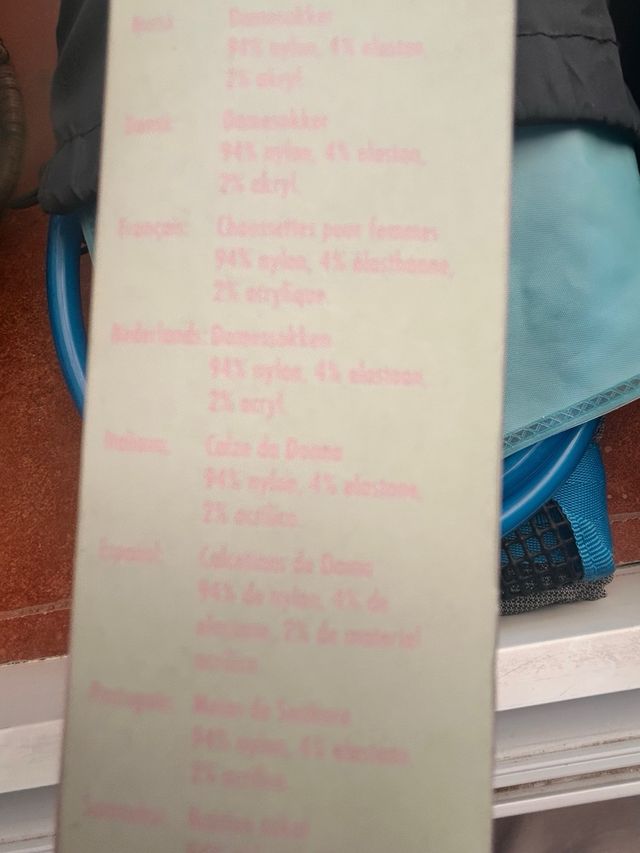 Norsk Damesokker
94% nylon, 4% elastan,
2% akryl.
Dansk: Damesokker
94% nylon, 4% elastan,
2% akryl.
Français: Chaussettes pour femmes
94% nylon, 4% élasthanne,
2% acrylique.
Nederlands: Damessokken
94% nylon, 4% elastaan,
2% acryl.
Italiano: Calze da Donna
94% nylon, 4% elastane,
2% acrilico.
Español: Calcetines de Dama
94% de nylon, 4% de
elastane, 2% de material
acrílico.
Português: Meias de Senhora
94% nylon, 4% elastano
2% acrílico.
Suomeksi: Naisten sukat